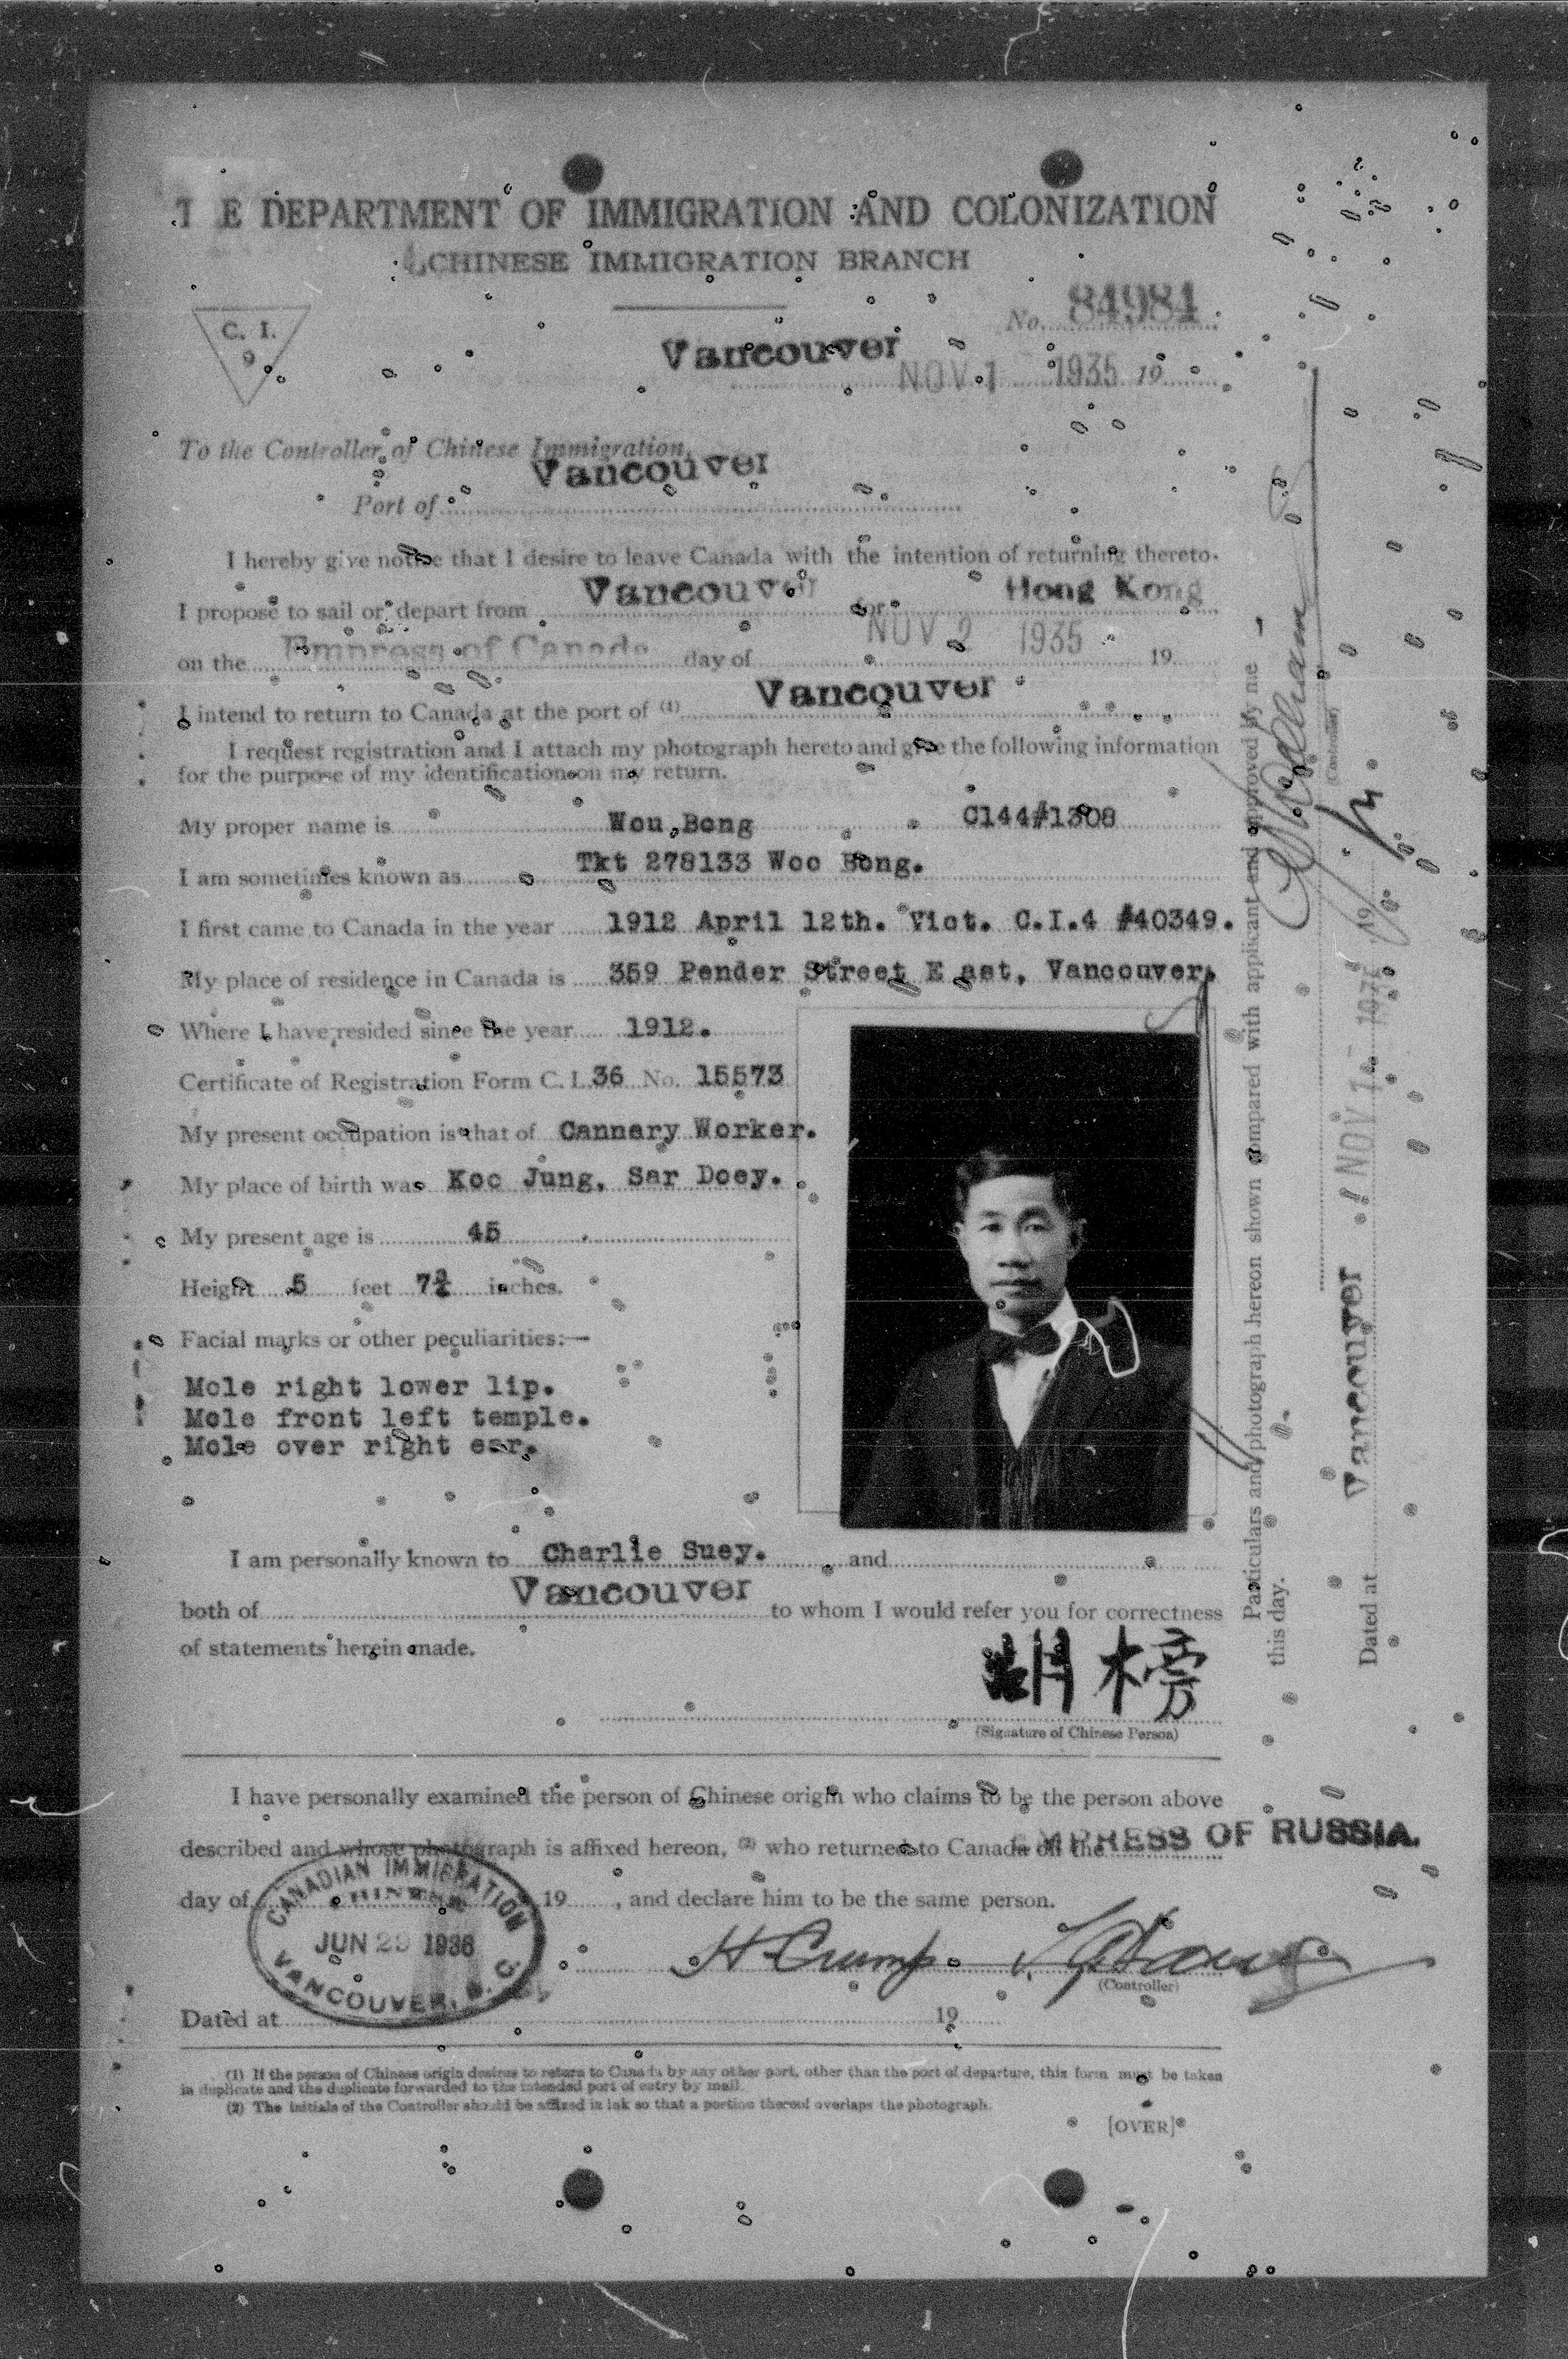 T E DEPARTMENT OF IMMIGRATION AND COLONIZATION
CHINESE IMMIGRATION BRANCH
C. I.
9
No. 84984
Vancouver
NOV 1 1935 19
To the Controller of Chinese Immigration,
Vancouver
Port of
I hereby give notice that I desire to leave Canada with the intention of returning thereto.
I propose to sail or depart from Vancouver for Hong Kong
on the Empress of Canada day of NOV 2 1935 19
I intend to return to Canada at the port of (1) Vancouver
I request registration and I attach my photograph hereto and give the following information
for the purpose of my identification on my return.
My proper name is Wou Bong C144#1308
I am sometimes known as Tkt 278133 Woo Bong.
I first came to Canada in the year 1912 April 12th. Vict. C.I.4 #40349.
My place of residence in Canada is 359 Pender Street E ast, Vancouver.
Where I have resided since the year 1912.
Certificate of Registration Form C. I. 36 No. 15573
My present occupation is that of Cannery Worker.
My place of birth was Koo Jung, Sar Doey.
My present age is 45
Height 5 feet 7¾ inches.
Facial marks or other peculiarities:—
Mole right lower lip.
Mole front left temple.
Mole over right ear.
I am personally known to Charlie Suey. and
both of Vancouver to whom I would refer you for correctness
of statements herein made.
胡榜
(Signature of Chinese Person)
I have personally examined the person of Chinese origin who claims to be the person above
described and whose photograph is affixed hereon, (2) who returned to Canada on the EMPRESS OF RUSSIA.
day of 19 , and declare him to be the same person.
CANADIAN IMMIGRATION
CHINESE
JUN 29 1936
VANCOUVER, B. C.
H Crump
(Controller)
Dated at 19
(1) If the person of Chinese origin desires to return to Canada by any other port, other than the port of departure, this form must be taken
in duplicate and the duplicate forwarded to the intended port of entry by mail.
(2) The initials of the Controller should be affixed in ink so that a portion thereof overlaps the photograph.
[OVER]
Particulars and photograph hereon shown compared with applicant and approved by me
this day.
(Controller)
Dated at Vancouver NOV 1 - 1935 19